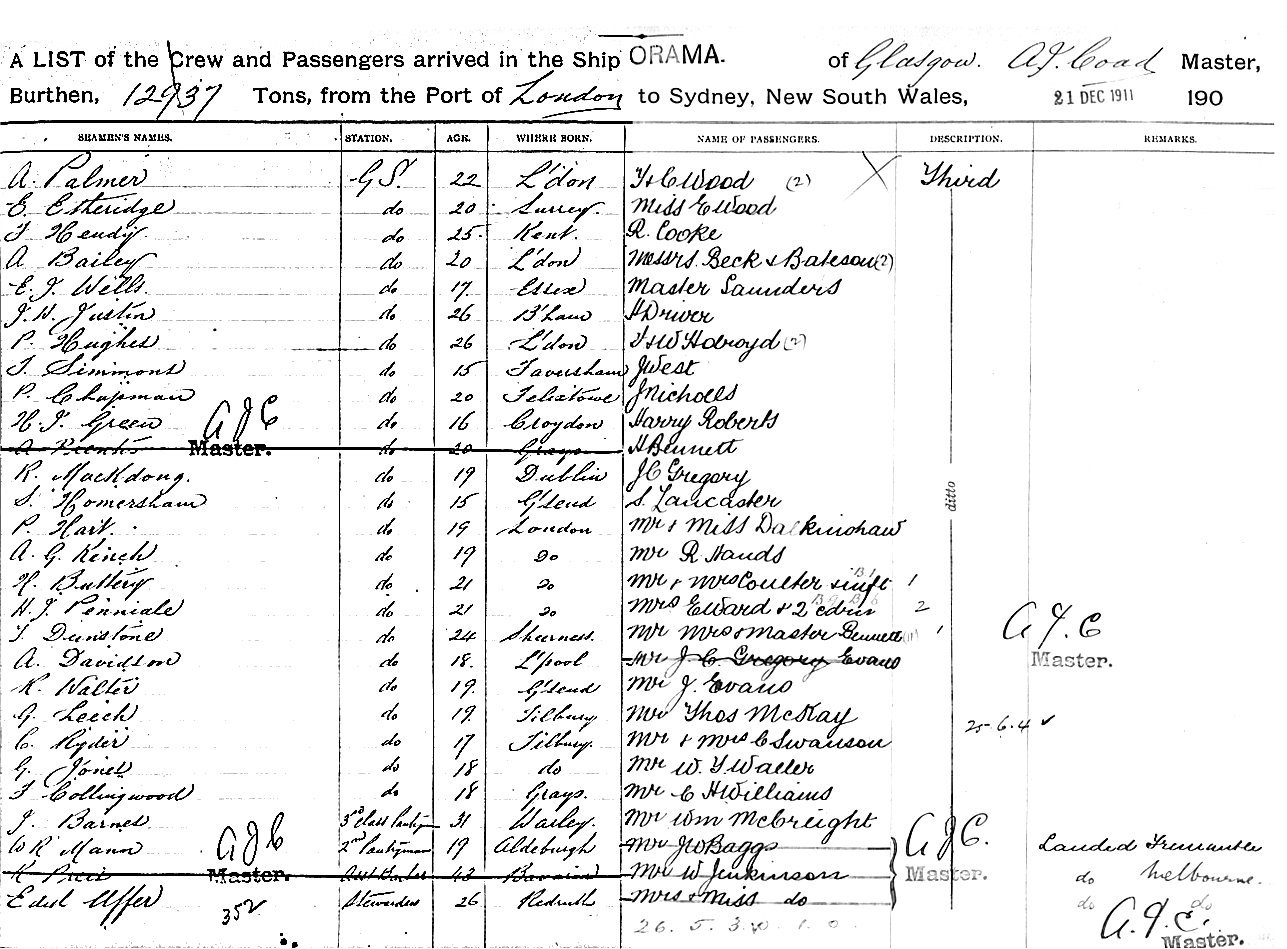 A LIST of the Crew and Passengers arrived in the Ship ORAMA. of Glasgow. A.J. Coad Master,
Burthen, 12937 Tons, from the Port of London to Sydney, New South Wales, 21 DEC 1911 190
SEAMEN'S NAMES. STATION. AGE. WHERE BORN. NAME OF PASSENGERS. DESCRIPTION. REMARKS.
A. Palmer G.S. 22 L'don Wood (2) X Third
E. Etheridge do 20 Surrey. Miss E Wood
Hendy do 25 Kent. R. Cooke
A. Bailey do 20 L'don Messrs. Beck & Bateson (2)
E. J. Wells. do 17 Essex Master Saunders
Justin do 26 B'ham H Driver
P. Hughes do 26 L'don Holroyd (2)
Simmons do 15 Faversham J West
P. Chapman do 20 Felixtowe J Nicholls
H. J. Green do 16 Croydon Harry Roberts
AJC Master.
A. do 20 Grays H Bennett
R. Mackdong. do 19 Dublin J C Gregory
S. Homersham do 15 G'send S. Lancaster
P. Hart. do 19 London Mr & Miss Dalkinshaw
A. G. Kinch do 19 Do Mr R Hands
H. Buttery do 21 Do Mr & Mrs Coulter & inft 1
H. J. Penniale do 21 Do Mrs E Ward & 2 cdrn 2
Dunstone do 24 Sheerness. Mr Mrs & Master Bennett 1
ditto
AJC Master.
A. Davidson do 18. L'pool Mr J. C Gregory Evans
R. Walter do 19. G'send Mr J. Evans
G. Leech do 19. Tilbury Mr Thos McKay 25-6.4 ✓
C. Ryder do 17 Tilbury. Mr & Mrs C Swanson
G. Jones do 18 do Mr W. Waller
Collingwood do 18 Grays. Mr C H Williams
J. Barnes 3rd Class Pantrym 31 Warley. Mr Wm McCreight
W R Mann 2nd Pantryman 19 Aldeburgh Mr J W Baggs Landed Fremantle
AJC Master.
43 Bavaria Mr W Jenkinson do Melbourne.
AJC. Master.
Stewardess 26 Redruth Mrs & Miss do do do
352
26. 5. 3. 1. 0.
A.J.C. Master.